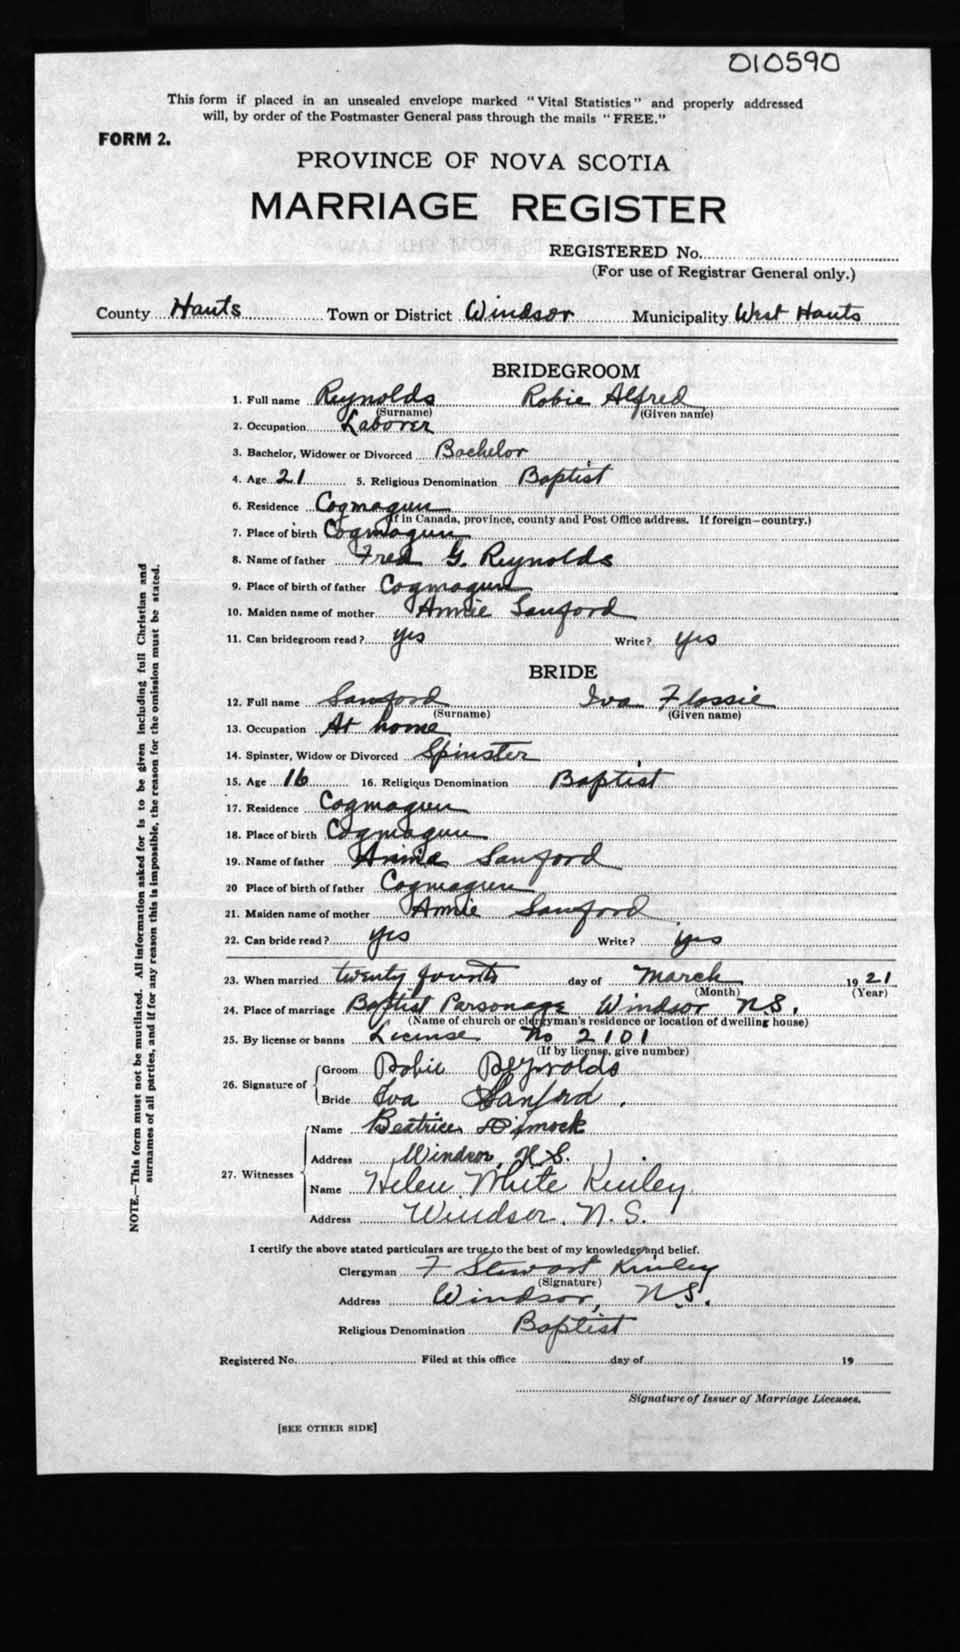 010590
This form if placed in an unsealed envelope marked "Vital Statistics" and properly addressed
will, by order of the Postmaster General pass through the mails "FREE."
FORM 2.
PROVINCE OF NOVA SCOTIA
MARRIAGE REGISTER
REGISTERED No.
(For use of Registrar General only.)
County Hants Town or District Windsor Municipality West Hants
BRIDEGROOM
1. Full name Reynolds Robie Alfred
(Surname) (Given name)
2. Occupation Laborer
3. Bachelor, Widower or Divorced Bachelor
4. Age 21 5. Religious Denomination Baptist
6. Residence Cogmagun
(If in Canada, province, county and Post Office address. If foreign—country.)
7. Place of birth Cogmagun
8. Name of father Fred G. Reynolds
9. Place of birth of father Cogmagun
10. Maiden name of mother Annie Sanford
11. Can bridegroom read? yes Write? yes
BRIDE
12. Full name Sanford Iva Flossie
(Surname) (Given name)
13. Occupation At home
14. Spinster, Widow or Divorced Spinster
15. Age 16 16. Religious Denomination Baptist
17. Residence Cogmagun
18. Place of birth Cogmagun
19. Name of father Sanford
20 Place of birth of father Cogmagun
21. Maiden name of mother Annie Sanford
22. Can bride read? yes Write? yes
23. When married twenty fourth day of March 1921
(Month) (Year)
24. Place of marriage Baptist Parsonage Windsor N.S.
(Name of church or clergyman's residence or location of dwelling house)
25. By license or banns License No 2101
(If by license, give number)
26. Signature of Groom Robie Reynolds
Bride Iva Sanford.
27. Witnesses Name Beatrice Dimock
Address Windsor, N.S.
Name Helen White Kinley
Address Windsor, N.S.
I certify the above stated particulars are true to the best of my knowledge and belief.
Clergyman F Stewart Kinley
(Signature)
Address Windsor, N.S.
Religious Denomination Baptist
Registered No. Filed at this office day of 19
Signature of Issuer of Marriage Licenses.
[SEE OTHER SIDE]
NOTE.—This form must not be mutilated. All information asked for is to be given including full Christian and
surnames of all parties, and if for any reason this is impossible, the reason for the omission must be stated.